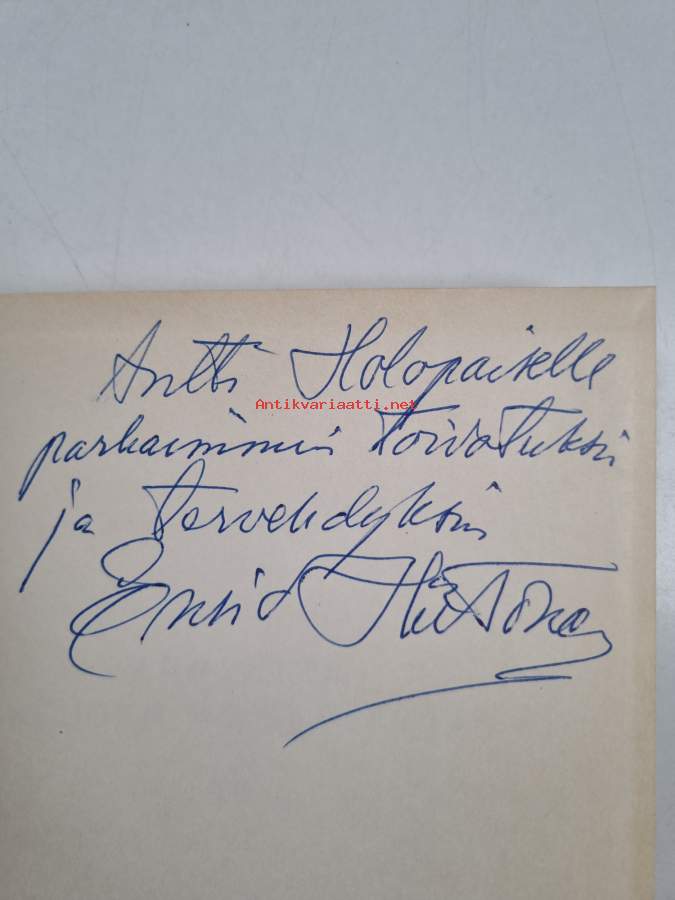 Antti Holopaiselle
Antikvariaatti.net
parhaimmin toivotuksin
ja tervehdyksin
Ensio Hiitonen